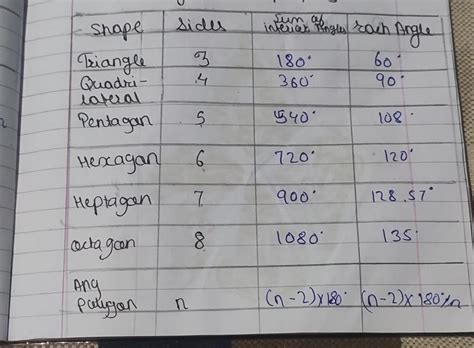 Shape Sides Sum of interior Angles Each Angle
Triangle 3 180° 60°
Quadri-lateral 4 360° 90°
Pentagon 5 540° 108
Hexagon 6 720° 120°
Heptagon 7 900° 128.57°
octagon 8 1080° 135
Any Polygon n (n-2)x180° (n-2)x180°/n